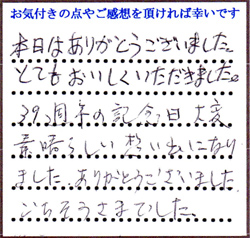 お気付きの点やご感想を頂ければ幸いです
本日はありがとうございました。
とてもおいしくいただきました。
39周年の記念日 大変
素晴らしい想い出になり
ました。ありがとうございました
ごちそうさまでした。